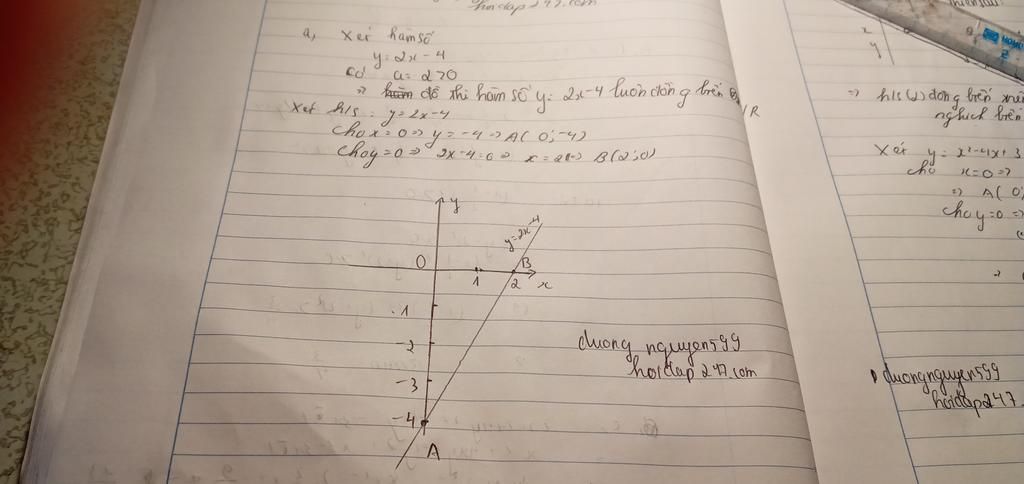 hoidap247.com
a, Xét hàm số
y = 2x - 4
có a = 2 > 0
=> đồ thị hàm số y = 2x - 4 luôn đồng biến
/R
Xét h/s : y = 2x - 4
Cho x = 0 => y = -4 => A ( 0 ; -4 )
Cho y = 0 => 2x - 4 = 0 => x = 2 => B ( 2 ; 0 )
y
y = 2x - 4
0
1
2
B
x
-1
-2
-3
-4
A
duong nguyen599
hoidap 247.com
x
y
=> h/s (2) đồng biến
nghịch biến
Xét y = x² - 4x + 3
Cho x = 0 =>
=> A ( 0
Cho y = 0 =>
duongnguyen599
hoidap247.